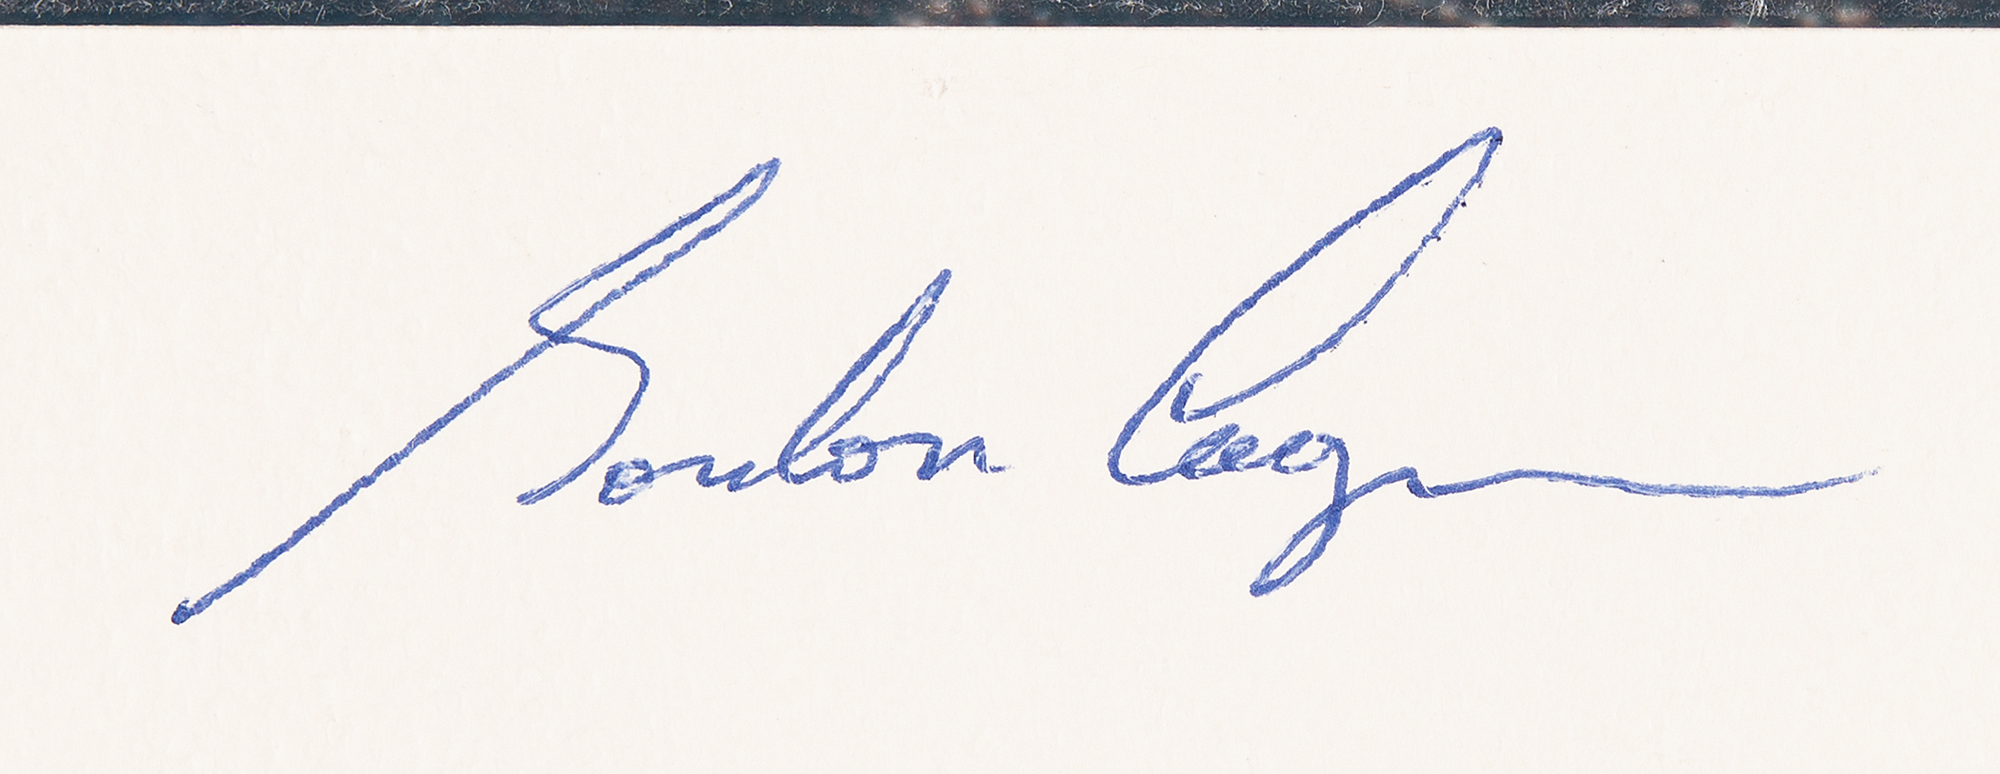 Gordon Cooper